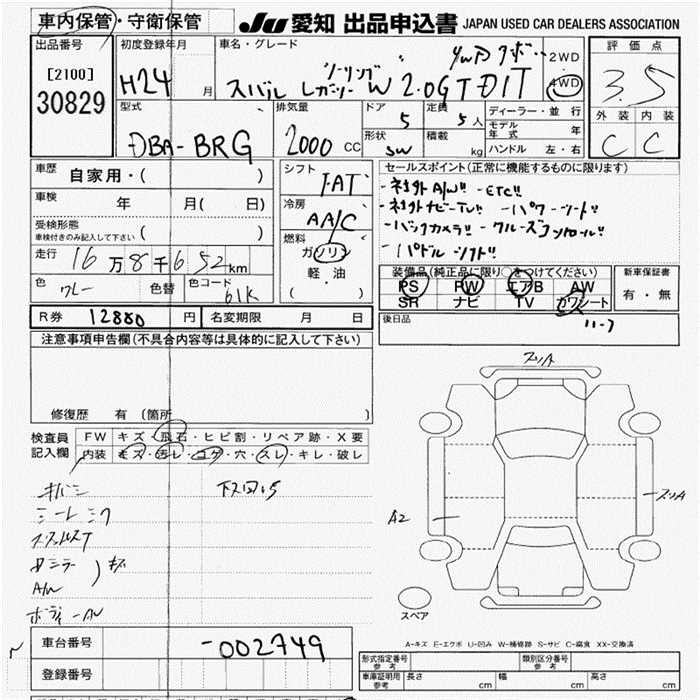 車内保管・守衛保管 JU 愛知 出品申込書 JAPAN USED CAR DEALERS ASSOCIATION
出品番号 初度登録年月 車名・グレード 2WD 4WD 評価点
[2100] 30829 H24 月 スバル レガシー ツーリングW 2.0GT DIT 3.5
外装 内装
C C
型式 DBA-BRG
排気量 2000 CC
ドア 5 定員 5人
形状 SW 積載 kg
ディーラー・並行
モデル年式 年
ハンドル 左・右
車歴 自家用・( )
車検 年 月( 日)
受検形態
車検付きのみ記入して下さい ( )
走行 16万8千652km
色 グレー 色替 色コード 61K
シフト FAT
冷房 AA/C
燃料
ガソリン
軽・油
( )
セールスポイント(正常に機能するものに限ります)
・社外A/W!! ・ETC!!
・社外ナビーTV!! ・パワーシート!!
・バックカメラ!! ・クルーズコントロール!!
・パドルシフト!!
装備品(純正品に限り○をつけてください) 新車保証書
PS PW エアB AW 有・無
SR ナビ TV カワシート
後日品
11-7
R券 12880 円 名変期限 月 日
注意事項申告欄(不具合内容等は具体的に記入して下さい)
修復歴 有 (箇所 )
検査員記入欄 FW キズ・飛石・ヒビ割・リペア跡・X要
内装 キズ・汚レ・コゲ・穴・スレ・キレ・破レ
A/W キズ
A2
スペア
車台番号 -002749
登録番号
A-キズ E-エクボ U-凹み W-補修跡 S-サビ C-腐食 XX-交換済
形式指定番号 参考 類別区分番号 参考
車庫証明用 参考 長さ cm 幅 cm 高さ cm